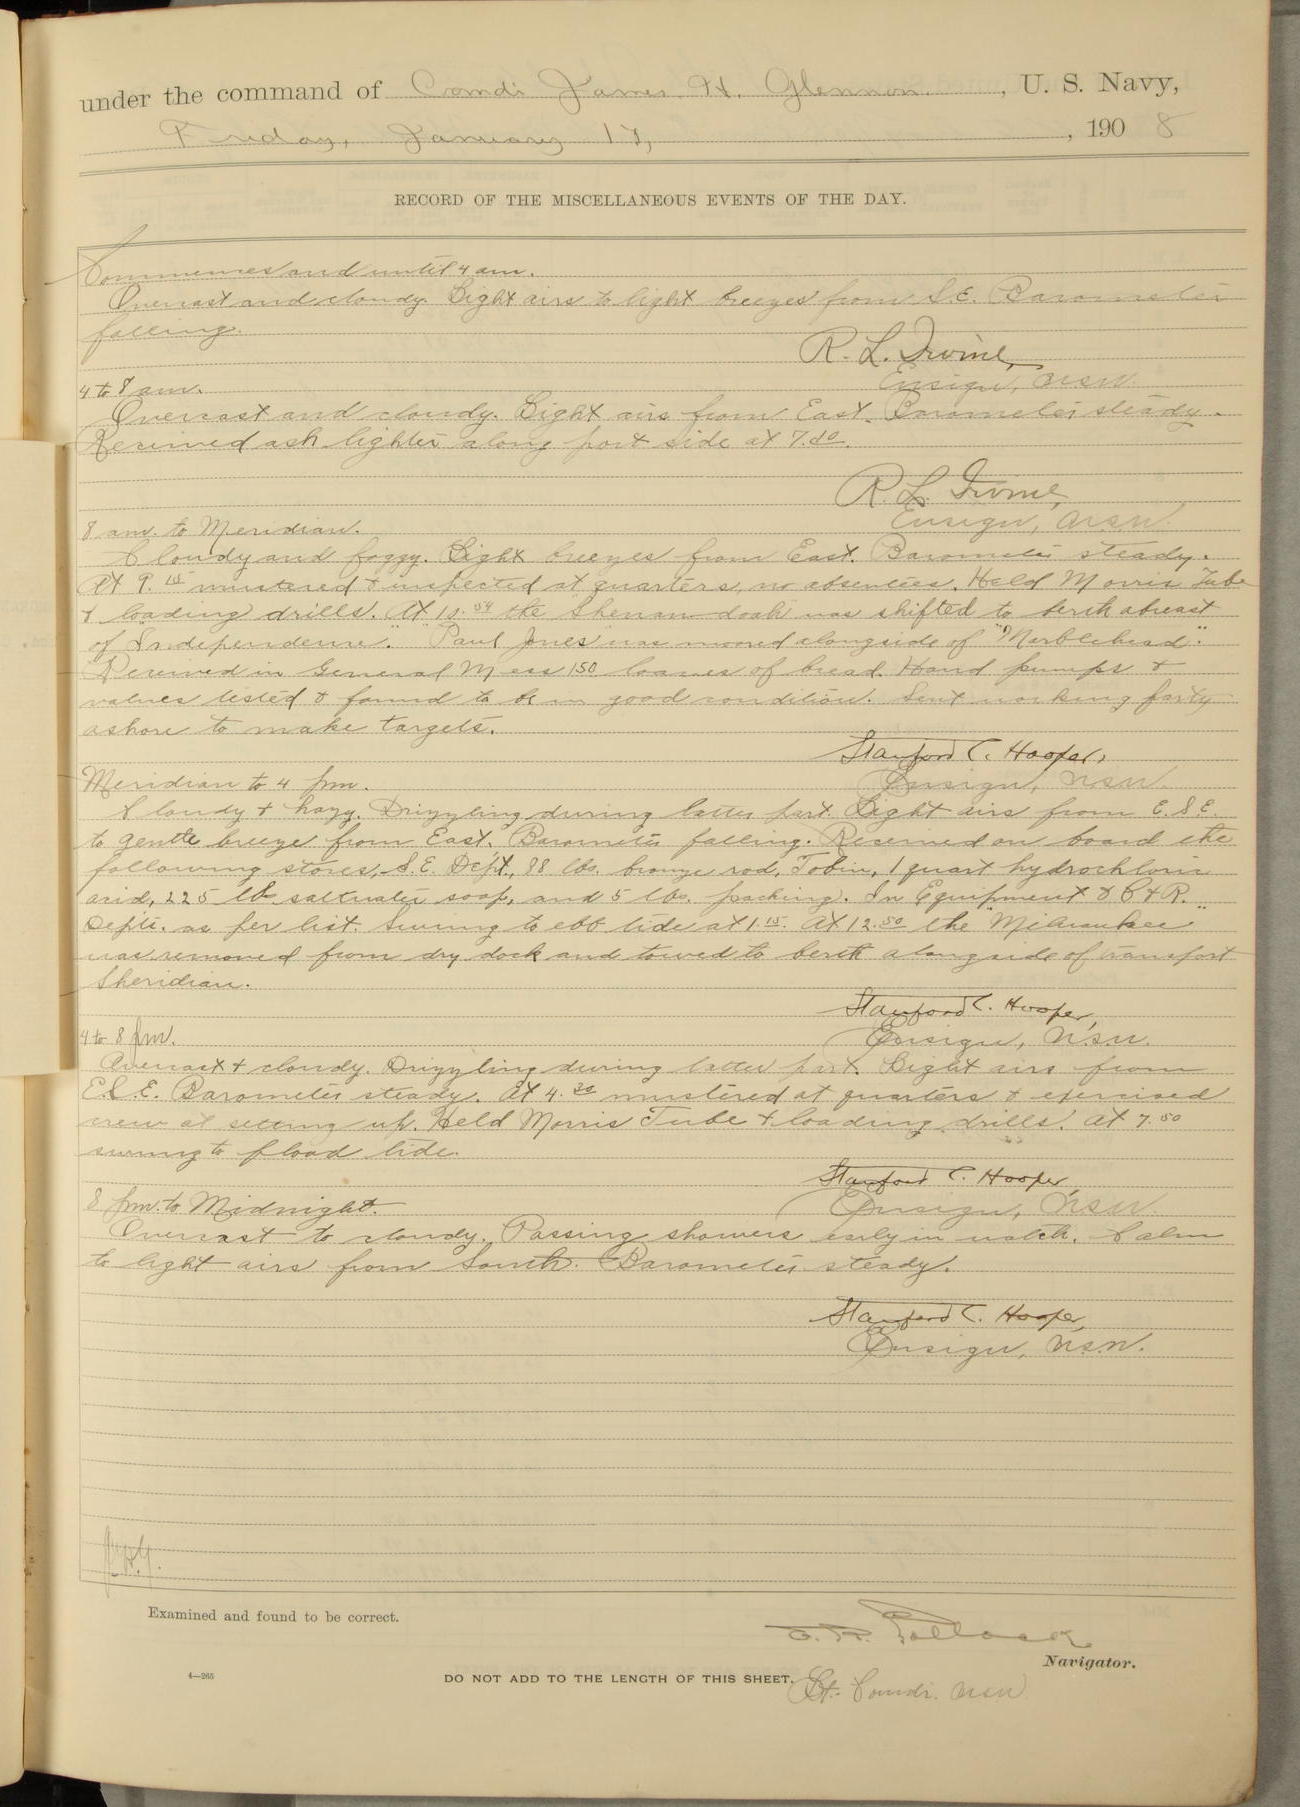 under the command of Comdr James H. Glennon, U. S. Navy,
Friday, January 17, , 190 8
RECORD OF THE MISCELLANEOUS EVENTS OF THE DAY.
Commences and until 4 am.
Overcast and cloudy. Light airs to light breezes from S.E. Barometer
falling.
R. L. Irvine,
Ensign, USN.
4 to 8 am.
Overcast and cloudy. Light airs from East. Barometer steady.
Received ash lighter along port side at 7.40.
R. L. Irvine,
Ensign, U.S.N.
8 am. to Meridian.
Cloudy and foggy. Light breezes from East. Barometer steady.
At 9.15 mustered & inspected at quarters, no absentees. Held Morris Tube
& loading drills. At 10.54 the "Shenandoah" was shifted to berth abreast
of "Independence." "Paul Jones" was moored alongside of "Marblehead".
Received in General Mess 150 loaves of bread. Hand pumps &
valves tested & found to be in good condition. Sent working party
ashore to make targets.
Stanford C. Hooper,
Ensign, USN.
Meridian to 4 pm.
Cloudy & hazy. Drizzling during latter part. Light airs from E.S.E.
to gentle breeze from East. Barometer falling. Received on board the
following stores, S.E. Dept., 88 lbs. bronze rod, Tobin, 1 quart hydrochloric
acid, 225 lb. saltwater soap, and 5 lbs. packing. In Equipment & C & R.
Depts. as per list. Swung to ebb tide at 1.15. At 12.50 the "Milwaukee"
was removed from dry dock and towed to berth alongside of transport
Sheridian.
Stanford C. Hooper,
Ensign, U.S.N.
4 to 8 pm.
Overcast & cloudy. Drizzling during latter part. Light airs from
E.S.E. Barometer steady. At 4.30 mustered at quarters & exercised
crew at setting up. Held Morris Tube & loading drills. At 7.50
swung to flood tide.
Stanford C. Hooper
Ensign, USN.
8 pm. to Midnight.
Overcast to cloudy. Passing showers early in watch. Calm
to light airs from South. Barometer steady.
Stanford C. Hooper,
Ensign, U.S.N.
Examined and found to be correct.
Navigator.
4—265
DO NOT ADD TO THE LENGTH OF THIS SHEET.
Lt. Comdr. USN